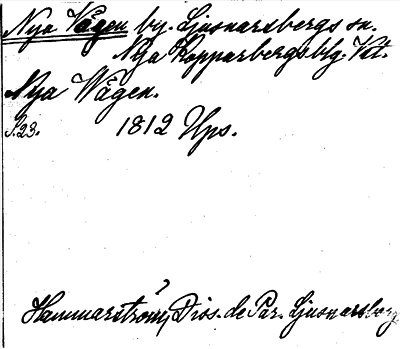 Nya Vägen by. Ljusnarsbergs sn.
Nya Kopparbergs blg. Vstl.
Nya Wägen.
S. 23. 1812 Ups.
Hammarström, Diss. de Par. Ljusnarsberg